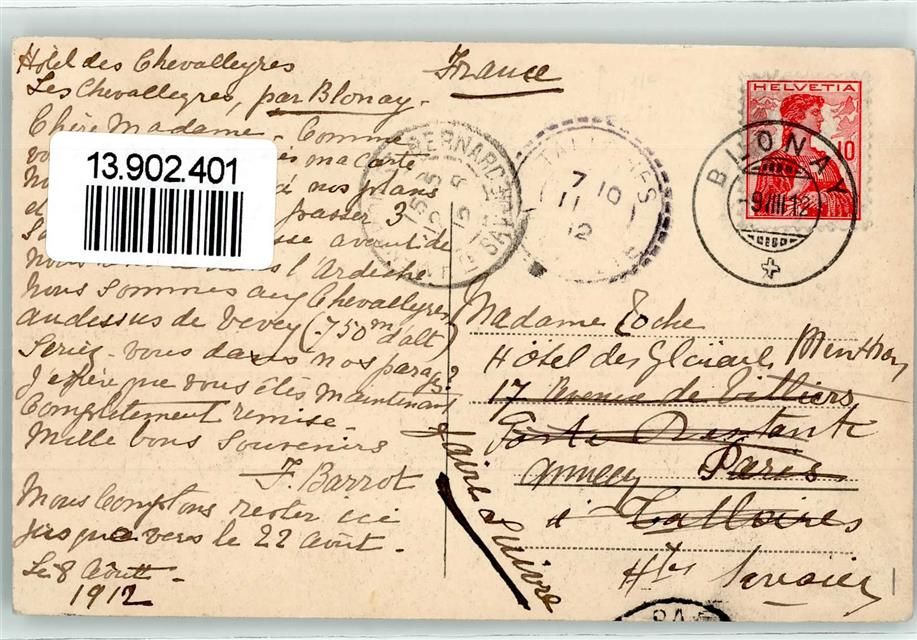 Hôtel des Chevalleyres
Les Chevalleyres, par Blonay -
Chère Madame - Comme
ma carte
à nos plans
et passer 3
avant de
l'Ardèche
Nous sommes aux Chevalleyres
au dessus de Vevey (750m d'alt)
Seriez-vous dans nos parages?
J'espère que vous êtes maintenant
complètement remise -
Mille bons souvenirs
J. Barrot
Nous comptons rester ici
jusque vers le 22 août -
Le 8 Août -
1912
13.902.401
France
HELVETIA
10
BLONAY
-9.VIII.12
TALLOIRES
7 10
11
12
BERNARD
Madame Roche
Hôtel des Menthon
17 Avenue de Villiers
Poste Restante
Annecy Paris
à Talloires
Hte Savoie
faire suivre